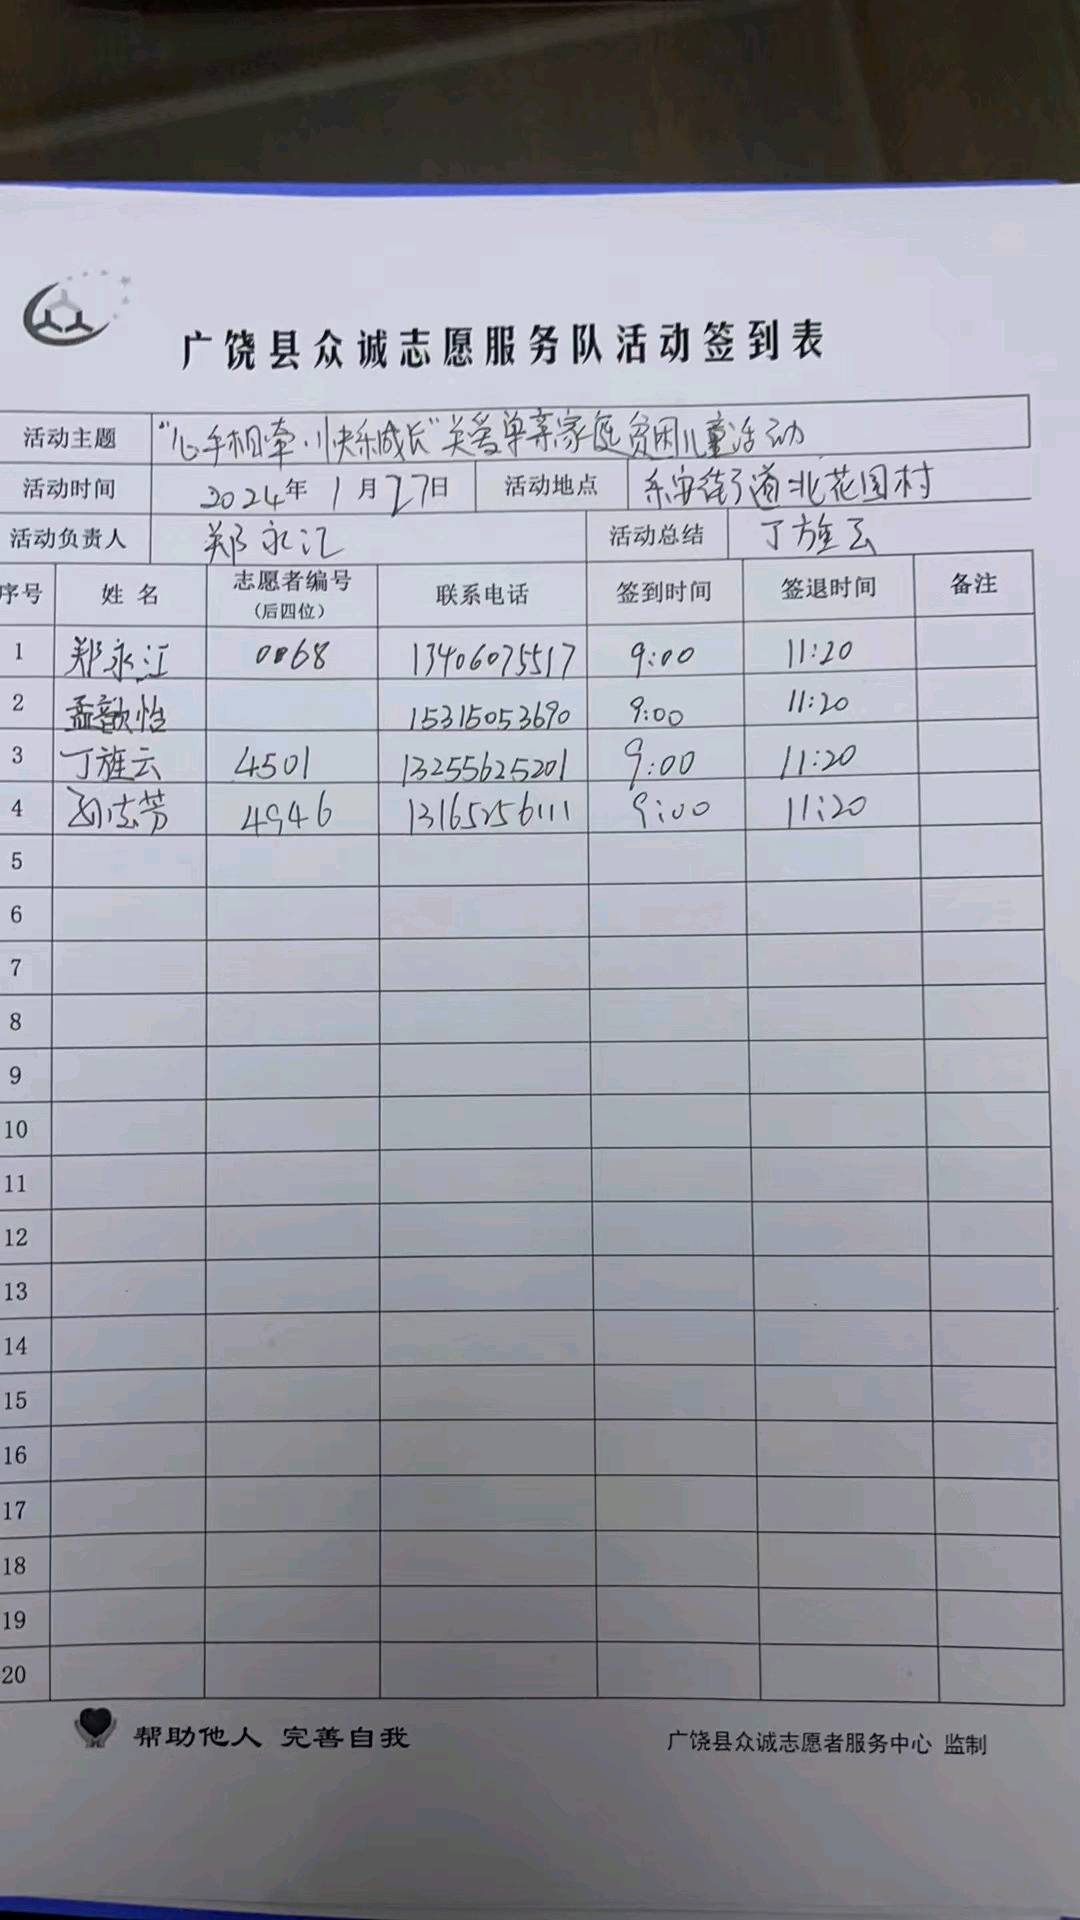 广饶县众诚志愿服务队活动签到表
活动主题 “心手相牵·快乐成长”关爱单亲家庭贫困儿童活动
活动时间 2024年1月27日 活动地点 乐安街道北花园村
活动负责人 郑永江 活动总结 丁旌云
序号 姓名 志愿者编号（后四位） 联系电话 签到时间 签退时间 备注
1 郑永江 0068 13406075517 9:00 11:20
2 孟歆怡 15315053690 9:00 11:20
3 丁旌云 4501 13255625201 9:00 11:20
4 芳 4946 13165256111 9:00 11:20
5
6
7
8
9
10
11
12
13
14
15
16
17
18
19
20
帮助他人 完善自我 广饶县众诚志愿者服务中心 监制